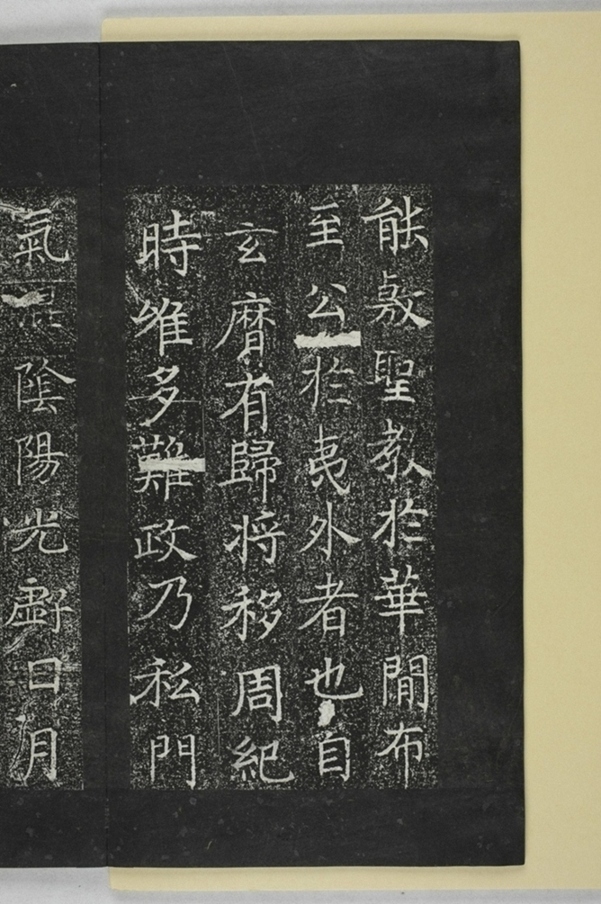 能敷聖教於華閒布
至公於夷外者也自
玄曆有歸将移周紀
時維多難政乃私門
氣混陰陽光虧日月